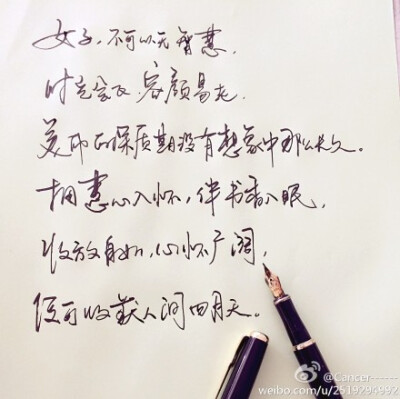 女子，不可以无智慧，
时光会飞，容颜易老，
美丽的保质期没有想象中那么长久。
拥慧心入怀，伴书香入眠，
收放自如，心怀广阔，
便可收获人间四月天。
@Cancer------
weibo.com/u/2519294992